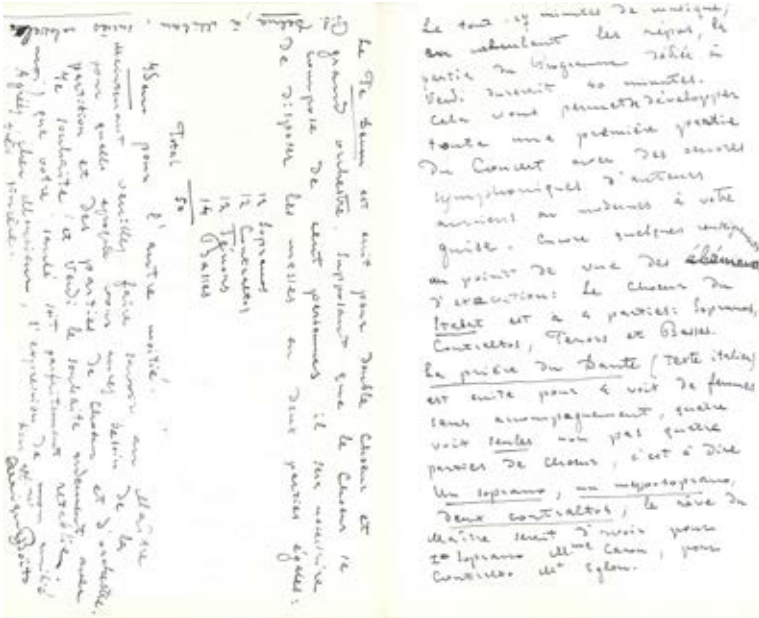 Le tout 27 minutes de musique,
en calculant les repos, la
partie du Programme dédiée à
Verdi durerait 40 minutes.
Cela vous permet de développer
toute une première partie
du Concert avec des oeuvres
symphoniques d'auteurs
anciens ou modernes à votre
guise. Encore quelques
au point de vue des
d'exécution: Le Choeur du
Stabat est à 4 parties: Sopranos,
Contraltos, Tenors et Basses.
La prière du Dante (texte italien)
est écrite pour 4 voix de femmes
sans accompagnement, quatre
voix seules non pas quatre
parties de Choeur, c'est à dire
un soprano, un mezzosoprano,
deux contraltos, le rêve du
Maître serait d'avoir pour
1er Soprano Mme Caron, pour
Contralto Mlle
Le Te Deum est écrit pour double Choeur et
grand orchestre. Supposant que le Choeur se
compose de cent personnes il sera nécessaire
de disposer les masses en deux parties égales:
12 Sopranos
12 Contraltos
12 Ténors
14 Basses
Total 50
pour l'autre moitié.
Maintenant veuillez faire savoir au Maître
pour quelle époque vous aurez besoin de la
partition et des parties de Choeur et d'orchestre.
Je souhaite (et Verdi le souhaite ardemment avec
moi) que votre santé soit parfaitement rétablie.
Agréez, cher Monsieur, l'expression de mon amitié
très sincère.
Arrigo Boito